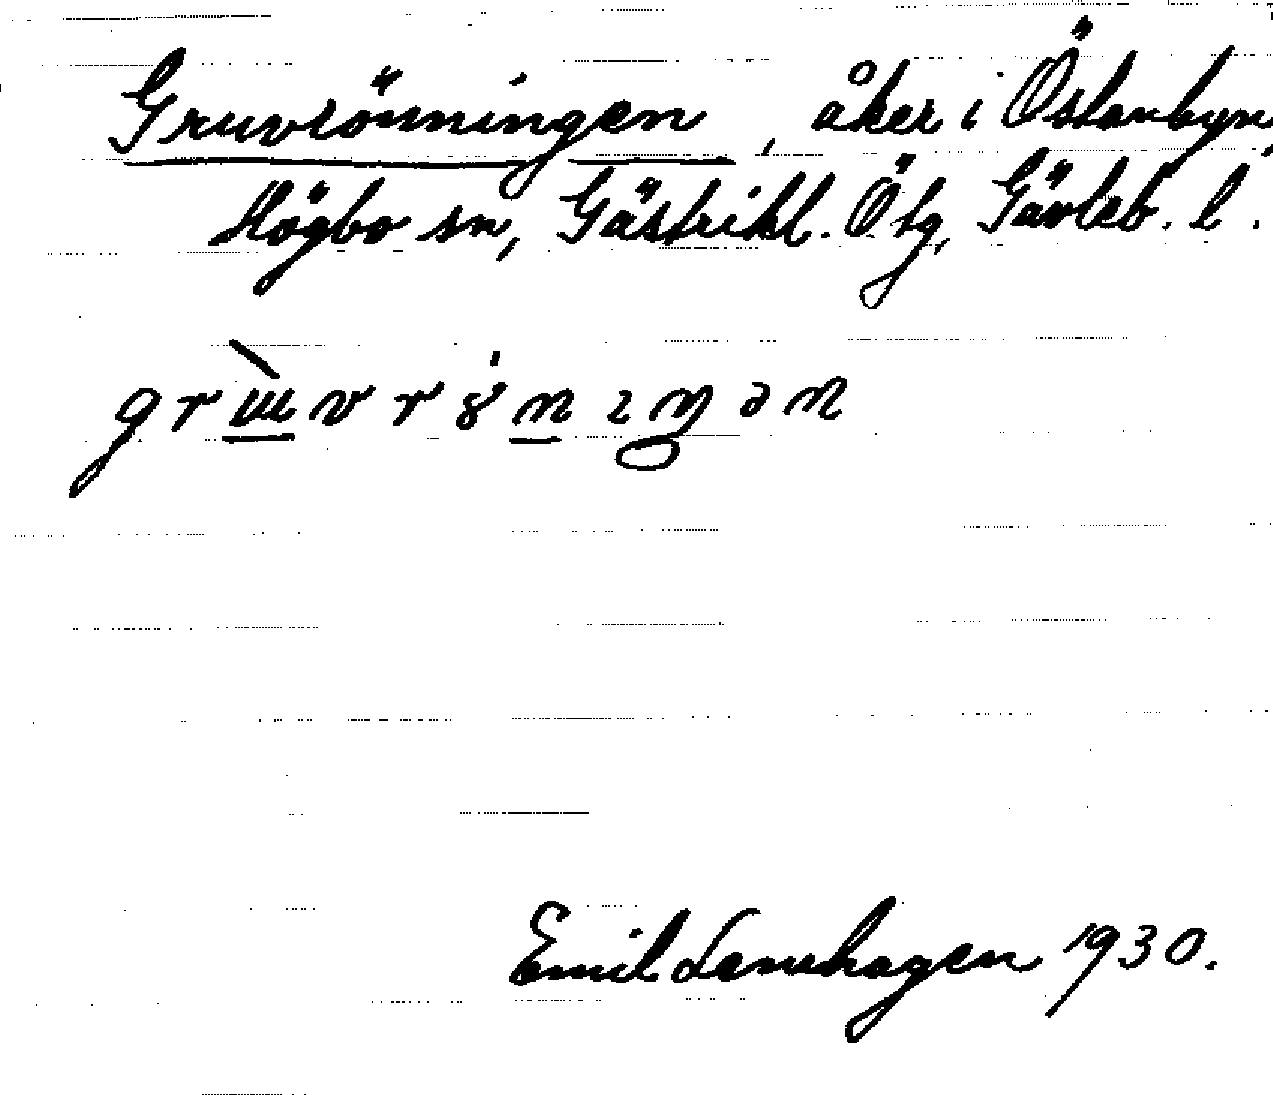 Gruvrönningen, åker i Östanbyn,
Högbo sn, Gästrikl. Östg, Gävleb. l.
Emil Lenshagen 1930.